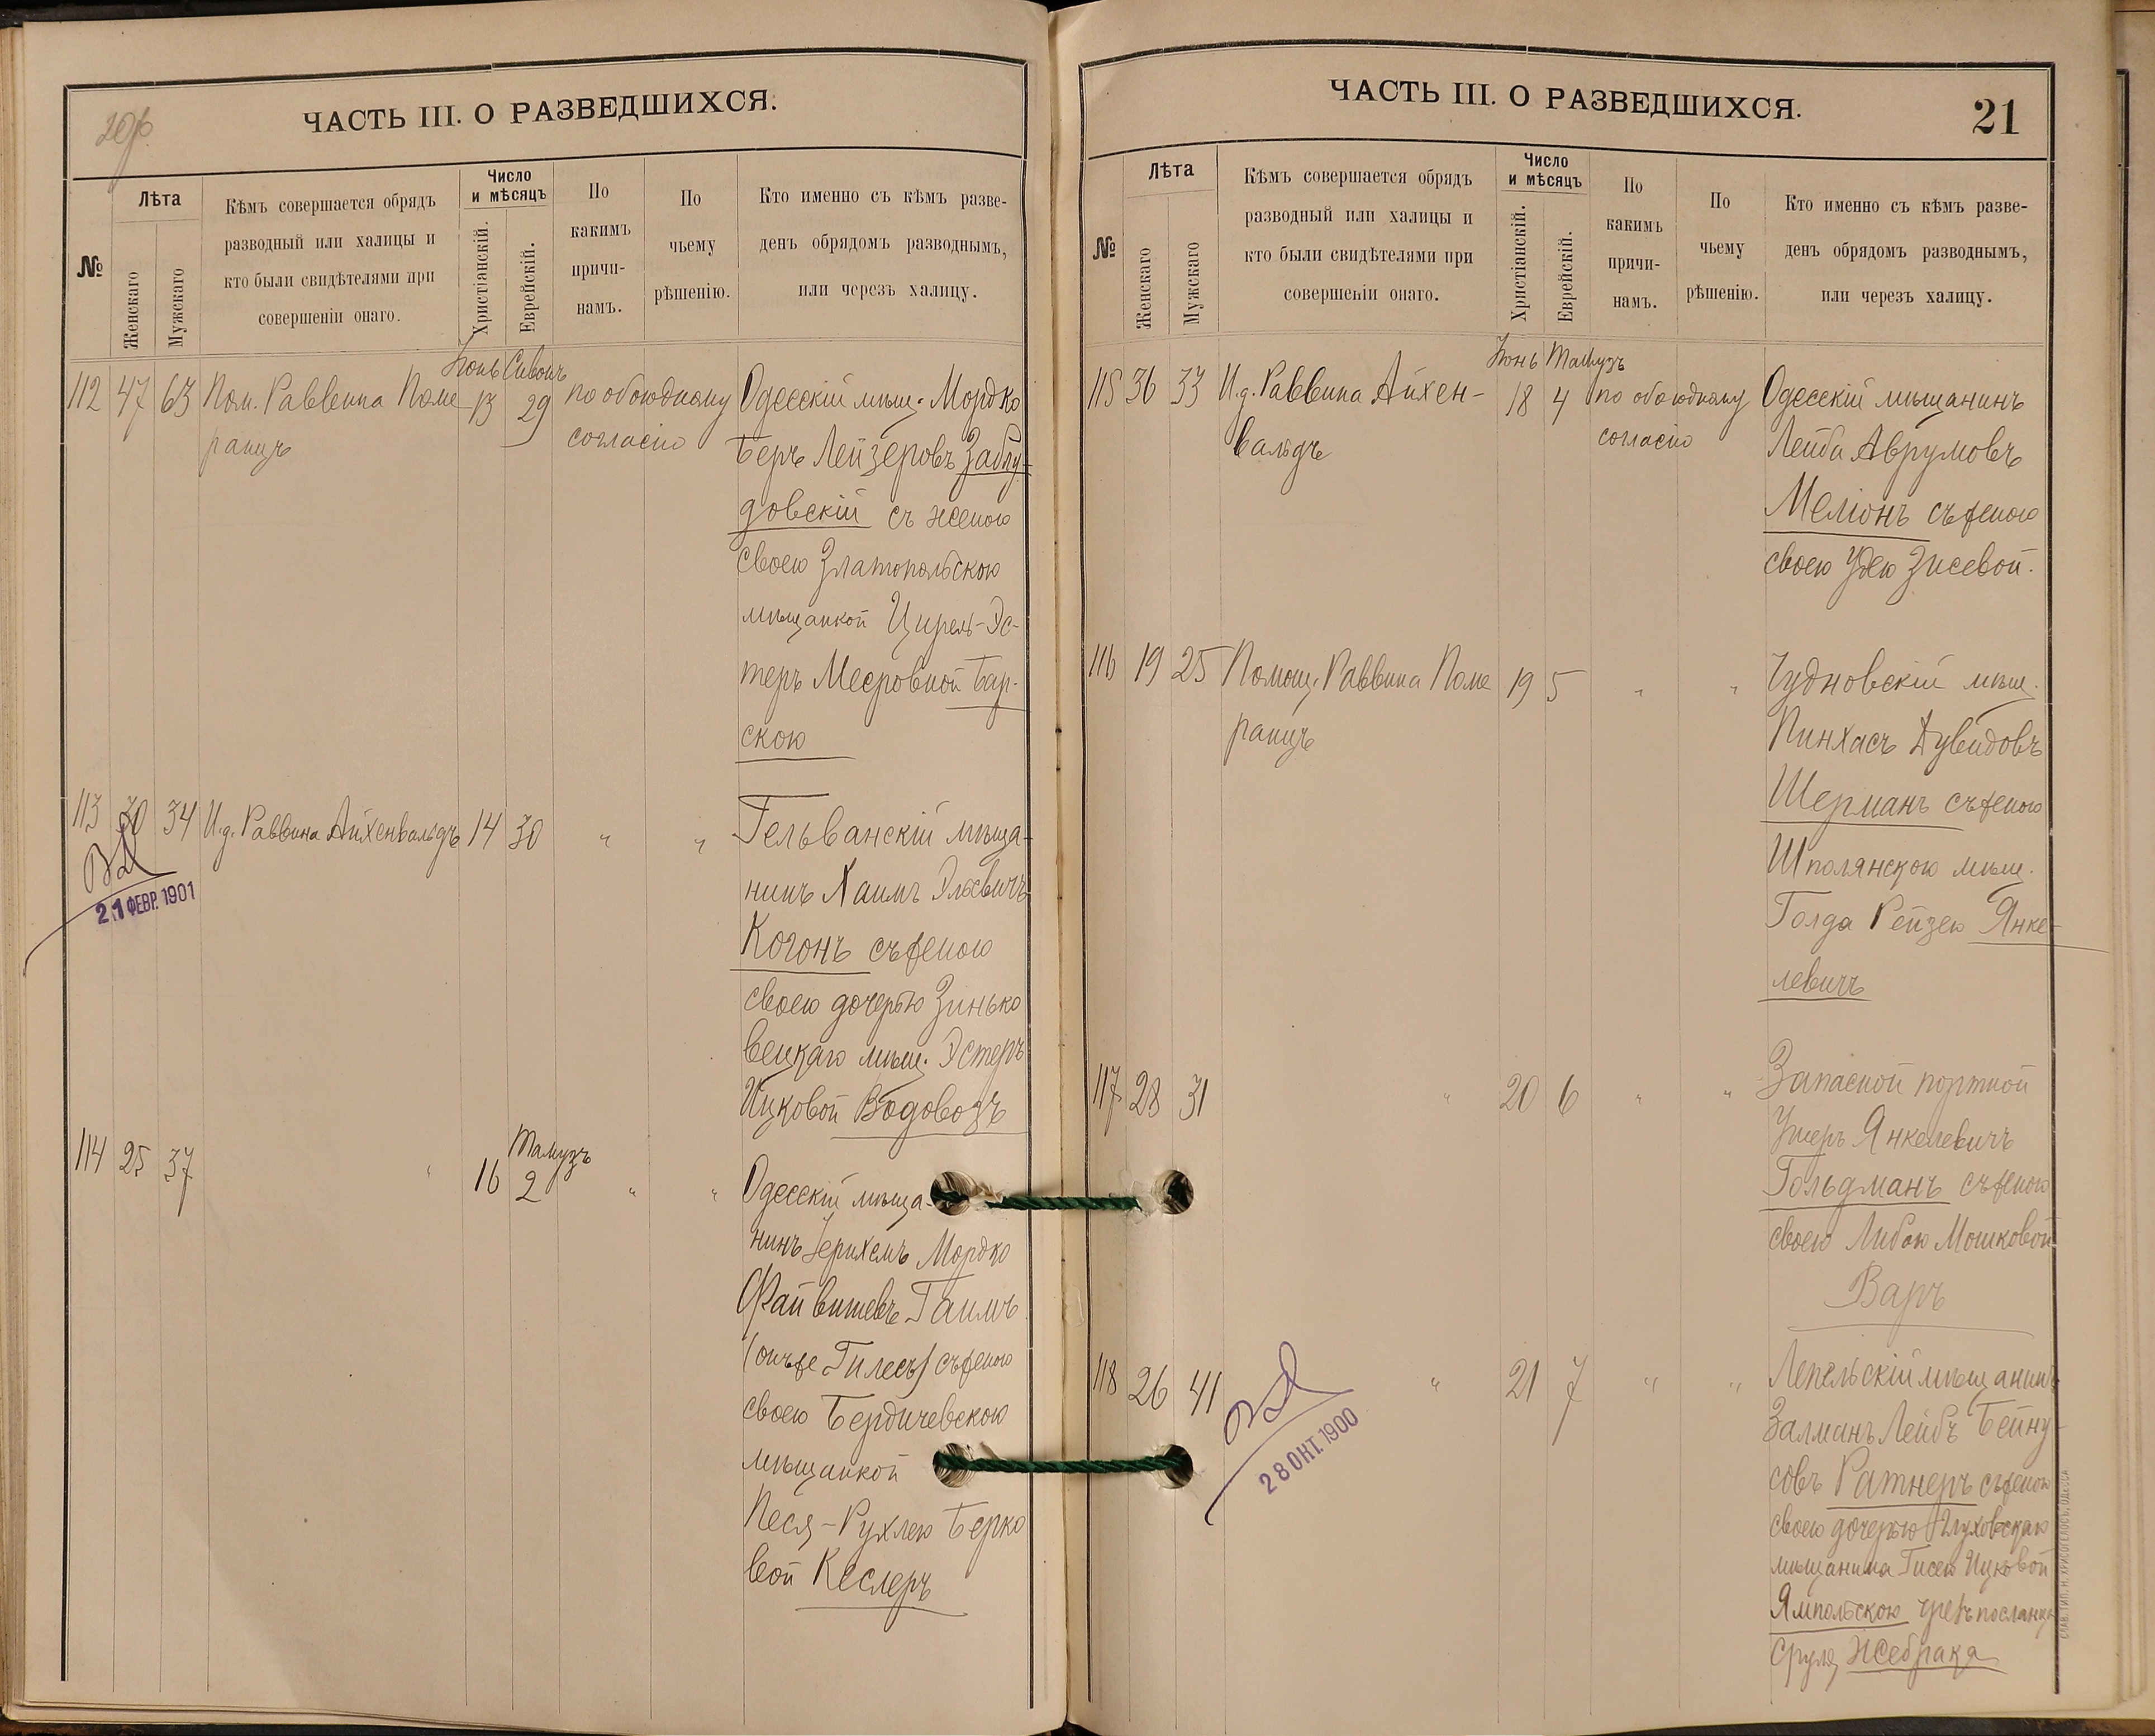 20р.
ЧАСТЬ III. О РАЗВЕДШИХСЯ.
№
Лѣта
Женскаго
Мужскаго
Кѣмъ совершается обрядъ
разводный или халицы и
кто были свидѣтелями при
совершеніи онаго.
Число
и мѣсяцъ
Христіанскій.
Еврейскій.
По
какимъ
причи-
намъ.
По
чьему
рѣшенію.
Кто именно съ кѣмъ разве-
денъ обрядомъ разводнымъ,
или черезъ халицу.
Іюнь Сивонъ
112 47 63 Пом. Раввина Поме 13 29 по обоюдному
ранцъ согласію
Одесскій мѣщ. Мордко
Беръ Лейзеровъ Заблу-
довскій съ женою
своею Златопольскою
мѣщанкой Цирель-Эс-
теръ Мееровной Бар-
скою
113 30 34 И.д. Раввина Айхенвальдъ 14 30 " "
21 ФЕВР. 1901
Гельванскій мѣща-
нинъ Хаимъ Эльевичъ
Когонъ съ женою
своею дочерью Зинько
вецкаго мѣщ. Эстеръ
Ицковой Водовозъ
Тамузъ
114 25 37 " 16 2 " "
Одесскій мѣща-
нинъ Іерихемъ Мордко
Файвишевъ Гаимъ
(онъ же Гилесъ) съ женою
своею Бердичевскою
мѣщанкой
Песя-Рухлею Берко
вой Кеслеръ
ЧАСТЬ III. О РАЗВЕДШИХСЯ.
21
№
Лѣта
Женскаго
Мужскаго
Кѣмъ совершается обрядъ
разводный или халицы и
кто были свидѣтелями при
совершеніи онаго.
Число
и мѣсяцъ
Христіанскій.
Еврейскій.
По
какимъ
причи-
намъ.
По
чьему
рѣшенію.
Кто именно съ кѣмъ разве-
денъ обрядомъ разводнымъ,
или черезъ халицу.
Іюнь Тамузъ
115 36 33 И.д. Раввина Айхен- 18 4 по обоюдному
вальдъ согласію
Одесскій мѣщанинъ
Лейба Аврумовъ
Меліонъ съ женою
своею Удею Зисевой.
116 19 25 Помощ. Раввина Поме 19 5 " "
ранцъ
Чудновскій мѣщ.
Пинхасъ Дувидовъ
Шерманъ съ женою
Шполянскою мѣщ.
Голда Рейзею Янке-
левичъ
117 28 31 " 20 6 " "
Запасной портной
Ушеръ Янкелевичъ
Гольдманъ съ женою
своею Либою Мошковой
Варъ
118 26 41 " 21 7 " "
28 ОКТ. 1900
Лепельскій мѣщанинъ
Залманъ Лейбъ Бейну-
совъ Ратнеръ съ женою
своею дочерью Глуховскаго
мѣщанина Гисею Ицковой
Ямпольскою чрезъ посланца
Сруля Жебрака
СЛАВ. ТИП. Н. ХРИСОГЕЛОСЪ, ОДЕССА